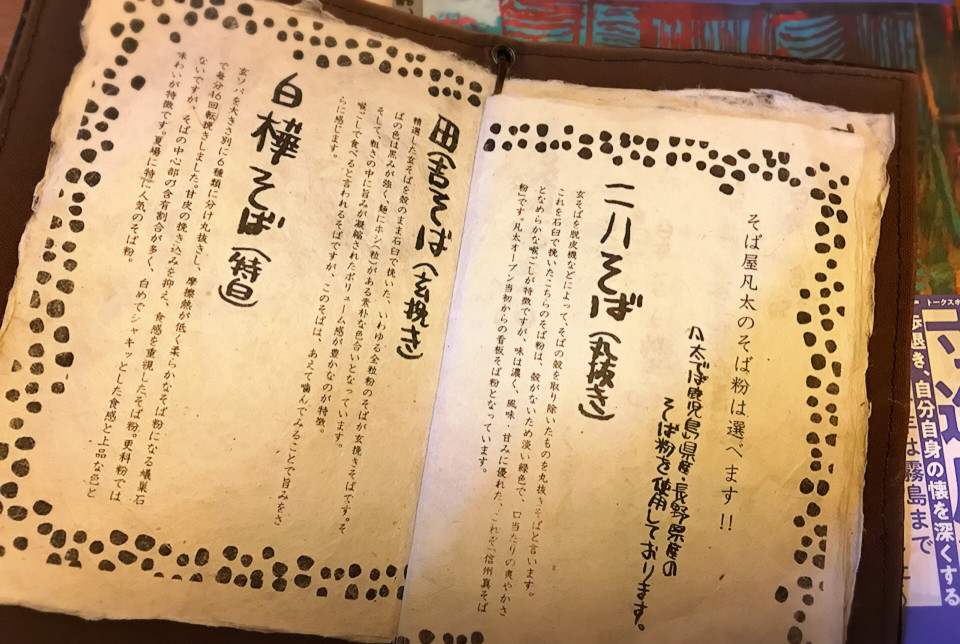 そば屋凡太のそば粉は選べます!!
凡太では鹿児島県産・長野県産の
そば粉を使用しております。
二八そば(丸抜き)
玄そばを脱皮機などによって、そばの殻を取り除いたものを丸抜きそばと言います。
これを石臼で挽いたこちらのそば粉は、殻がないため淡い緑色で、口当たりの爽やかさ
となめらかな喉ごしが特徴ですが、味は濃く、風味・甘みに優れた、これぞ「信州真そば
粉」です。凡太オープン当初からの看板そば粉となっています。
田舎そば(玄挽き)
精選した玄そばを殻のまま石臼で挽いた、いわゆる全粒粉のそばが玄挽きそばです。そ
ばの色は黒みが強く、麺にホシ(粒)がある素朴な色合いとなっています。
そして、粗さの中に旨みが凝縮されたボリューム感が豊かなのが特徴。
喉ごしで食べると言われるそばですが、このそばは、あえて噛んでみることで旨みをさ
らに感じます。
白樺そば(特白)
玄ソバを大きさ別に6種類に分け丸抜きし、摩擦熱が低く柔らかなそば粉になる蟻巣石
で毎分16回転挽きしました。甘皮の挽き込みを抑え、食感を重視したそば粉。更科粉では
ないですが、そばの中心部の含有割合が多く、白めでシャキッとした食感と上品な色と
味わいが特徴です。夏場に特に人気のそば粉。
トークスポ
自分自身の懐を深くする
は霧島まで